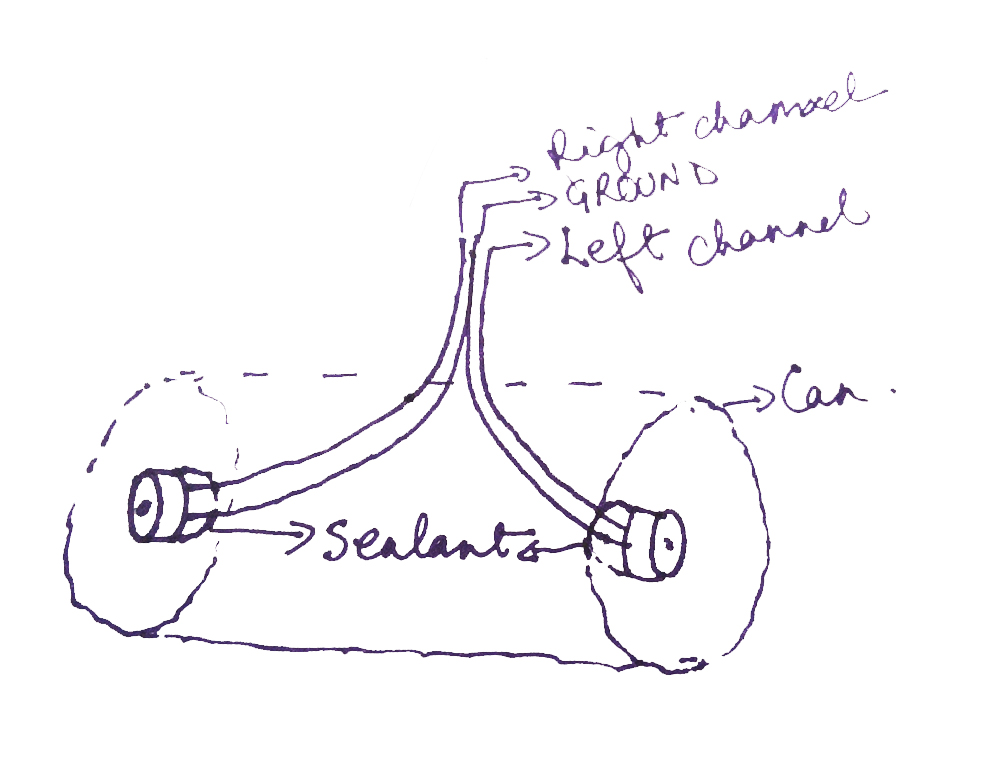 Right channel
GROUND
Left channel
Can.
Sealant